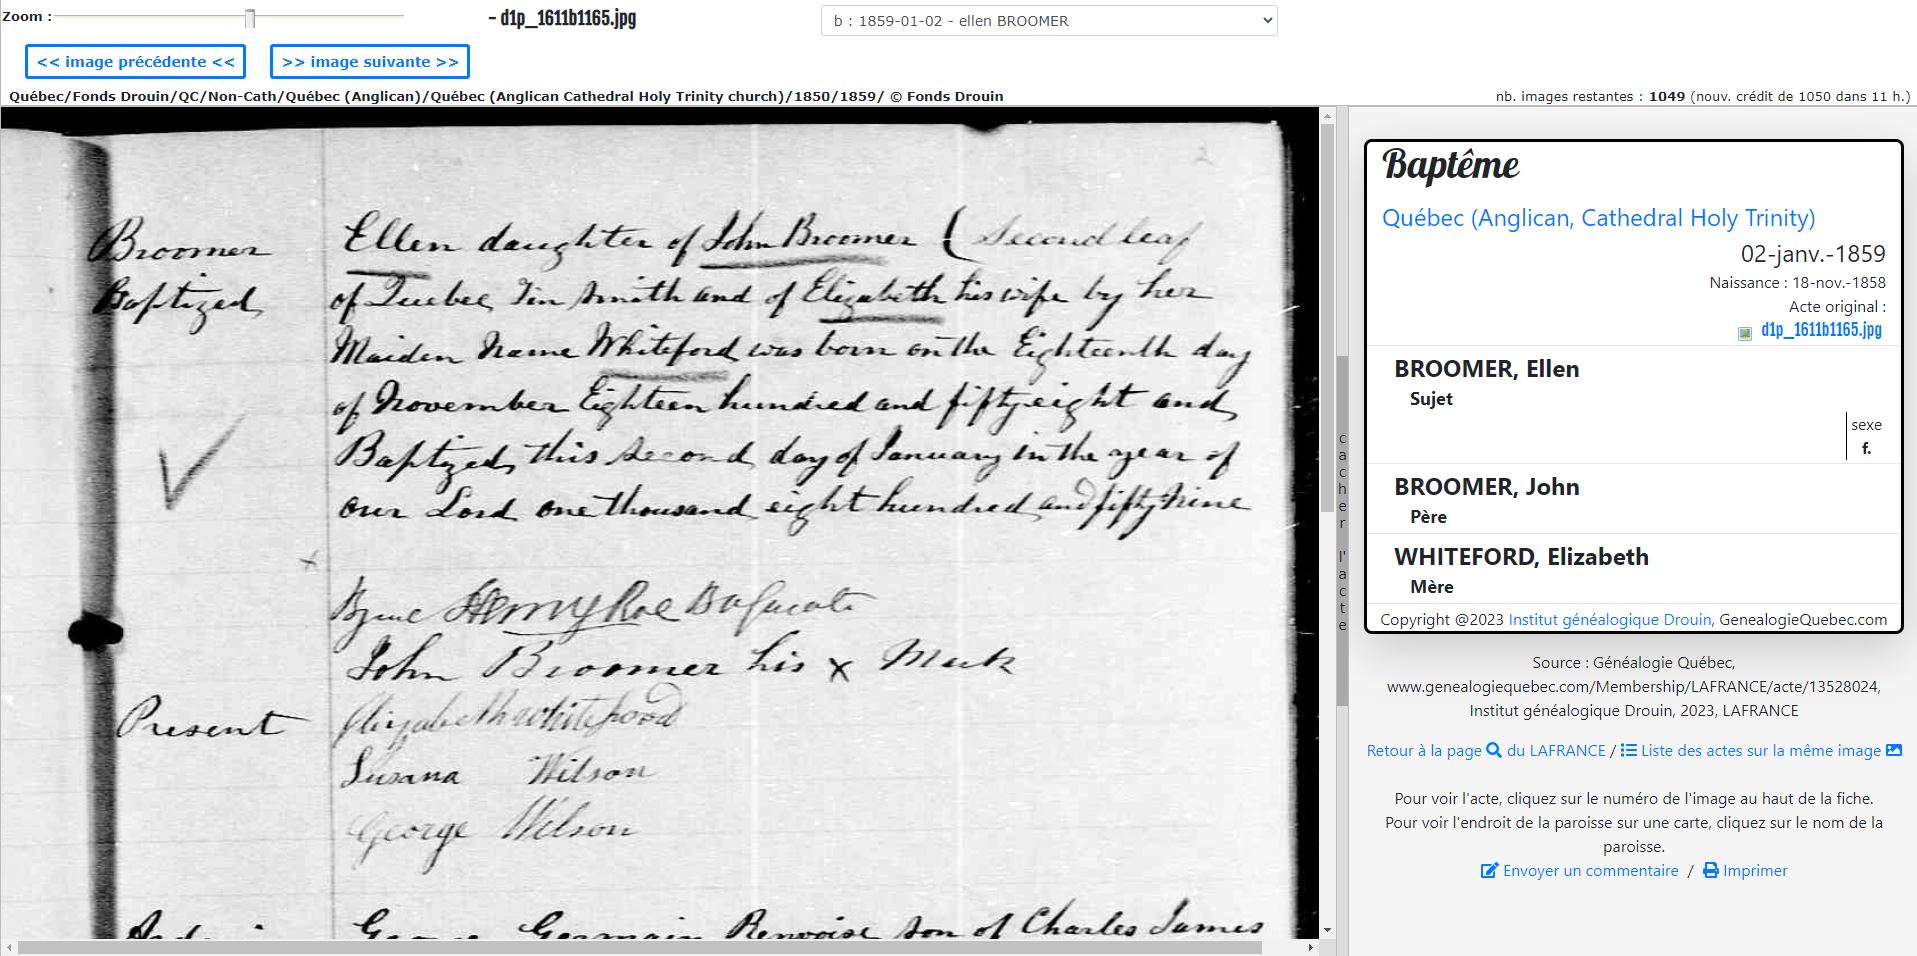 Zoom :
- d1p_1611b1165.jpg
b : 1859-01-02 - ellen BROOMER
<< image précédente <<
>> image suivante >>
Québec/Fonds Drouin/QC/Non-Cath/Québec (Anglican)/Québec (Anglican Cathedral Holy Trinity church)/1850/1859/ © Fonds Drouin
nb. images restantes : 1049 (nouv. crédit de 1050 dans 11 h.)
Broomer
Baptized
Ellen daughter of John Broomer (Second leaf
of Quebec Tin Smith and of Elizabeth his wife by her
Maiden Name Whiteford was born on the Eighteenth day
of November Eighteen hundred and fifty eight and
Baptized this second day of January in the year of
our Lord one thousand eight hundred and fifty Nine
By me Henry Roe
John Broomer his x Mark
Present
Elizabeth Whiteford
Susana Wilson
George Wilson
George Germain son of Charles James
cacher l'acte
Baptême
Québec (Anglican, Cathedral Holy Trinity)
02-janv.-1859
Naissance : 18-nov.-1858
Acte original :
d1p_1611b1165.jpg
BROOMER, Ellen
Sujet
sexe
f.
BROOMER, John
Père
WHITEFORD, Elizabeth
Mère
Copyright @2023 Institut généalogique Drouin, GenealogieQuebec.com
Source : Généalogie Québec,
www.genealogiequebec.com/Membership/LAFRANCE/acte/13528024,
Institut généalogique Drouin, 2023, LAFRANCE
Retour à la page du LAFRANCE / Liste des actes sur la même image
Pour voir l'acte, cliquez sur le numéro de l'image au haut de la fiche.
Pour voir l'endroit de la paroisse sur une carte, cliquez sur le nom de la
paroisse.
Envoyer un commentaire / Imprimer